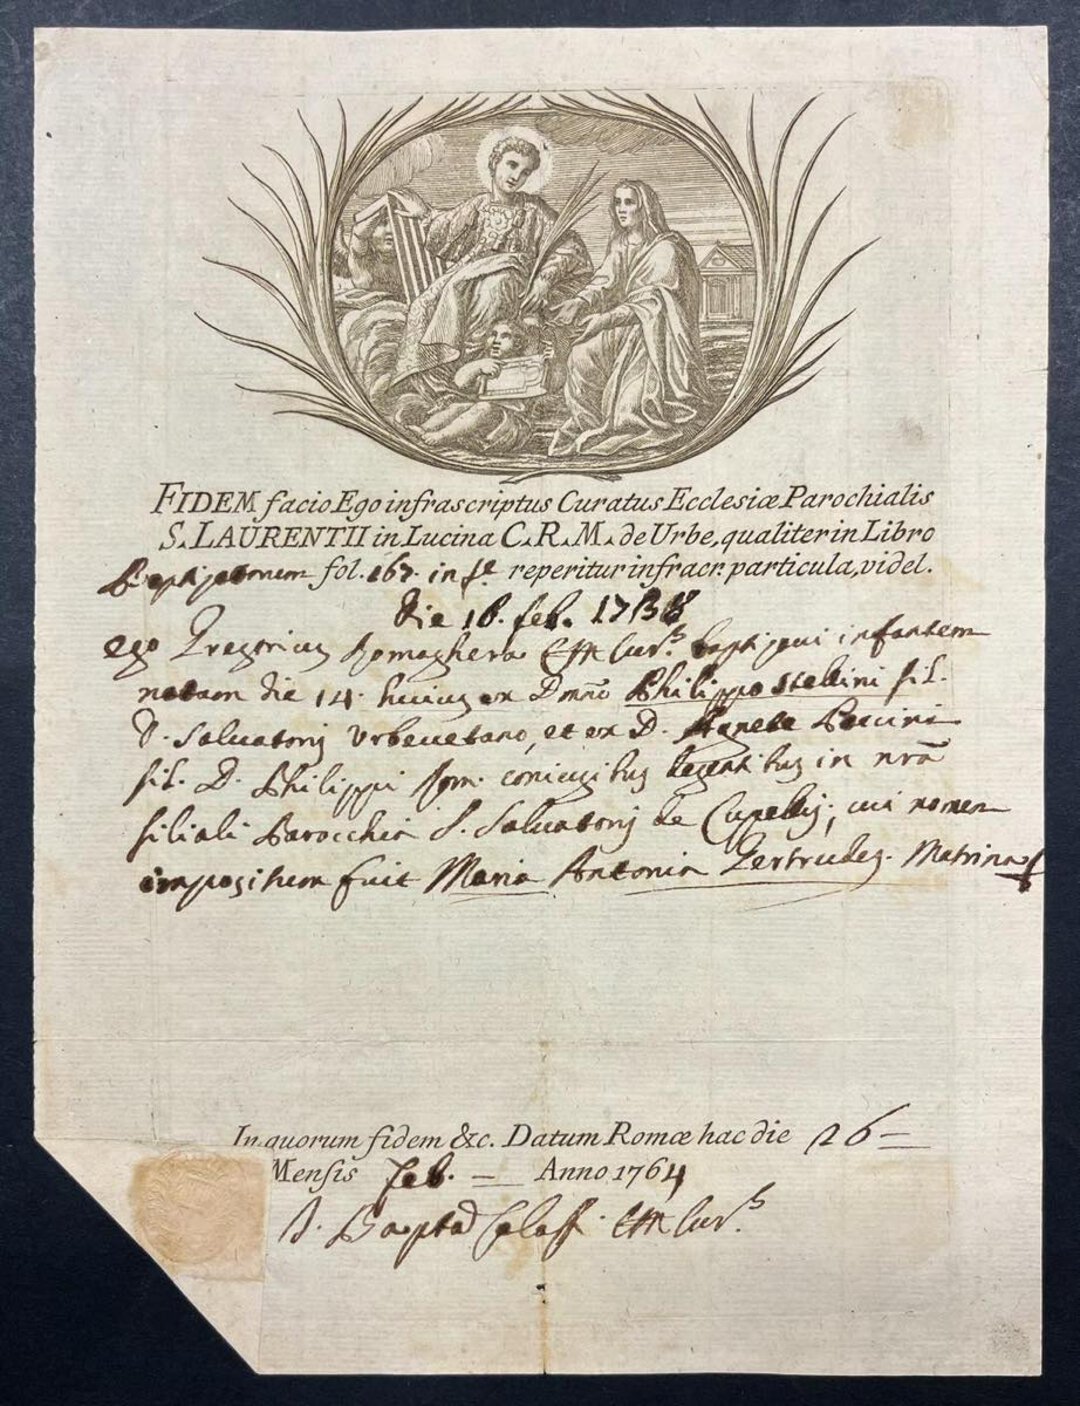 FIDEM facio Ego infrascriptus Curatus Ecclesiæ Parochialis
S. LAURENTII in Lucina C. R. M. de Urbe, qualiter in Libro
Baptizatorum fol. 167. in fe reperitur infracr. particula, videl.
die 16. feb. 1738
ego Gregorius Romaghera Cur.s baptizavi infantem
natam die 14. huius ex Dnno Philippo Stellini fil.
D. Salvatoris Urbevetano, et ex D. Agnete Peccini
fil. D. Philippi Rom. coniugibus degentibus in nrã
filiali Parocchia S. Salvatoris de Cupellis, cui nomen
impositum fuit Maria Antonia Gertrudes. Matrina
In quorum fidem &c. Datum Romæ hac die 26
Mensis feb. Anno 1764
Bapta Cur.s